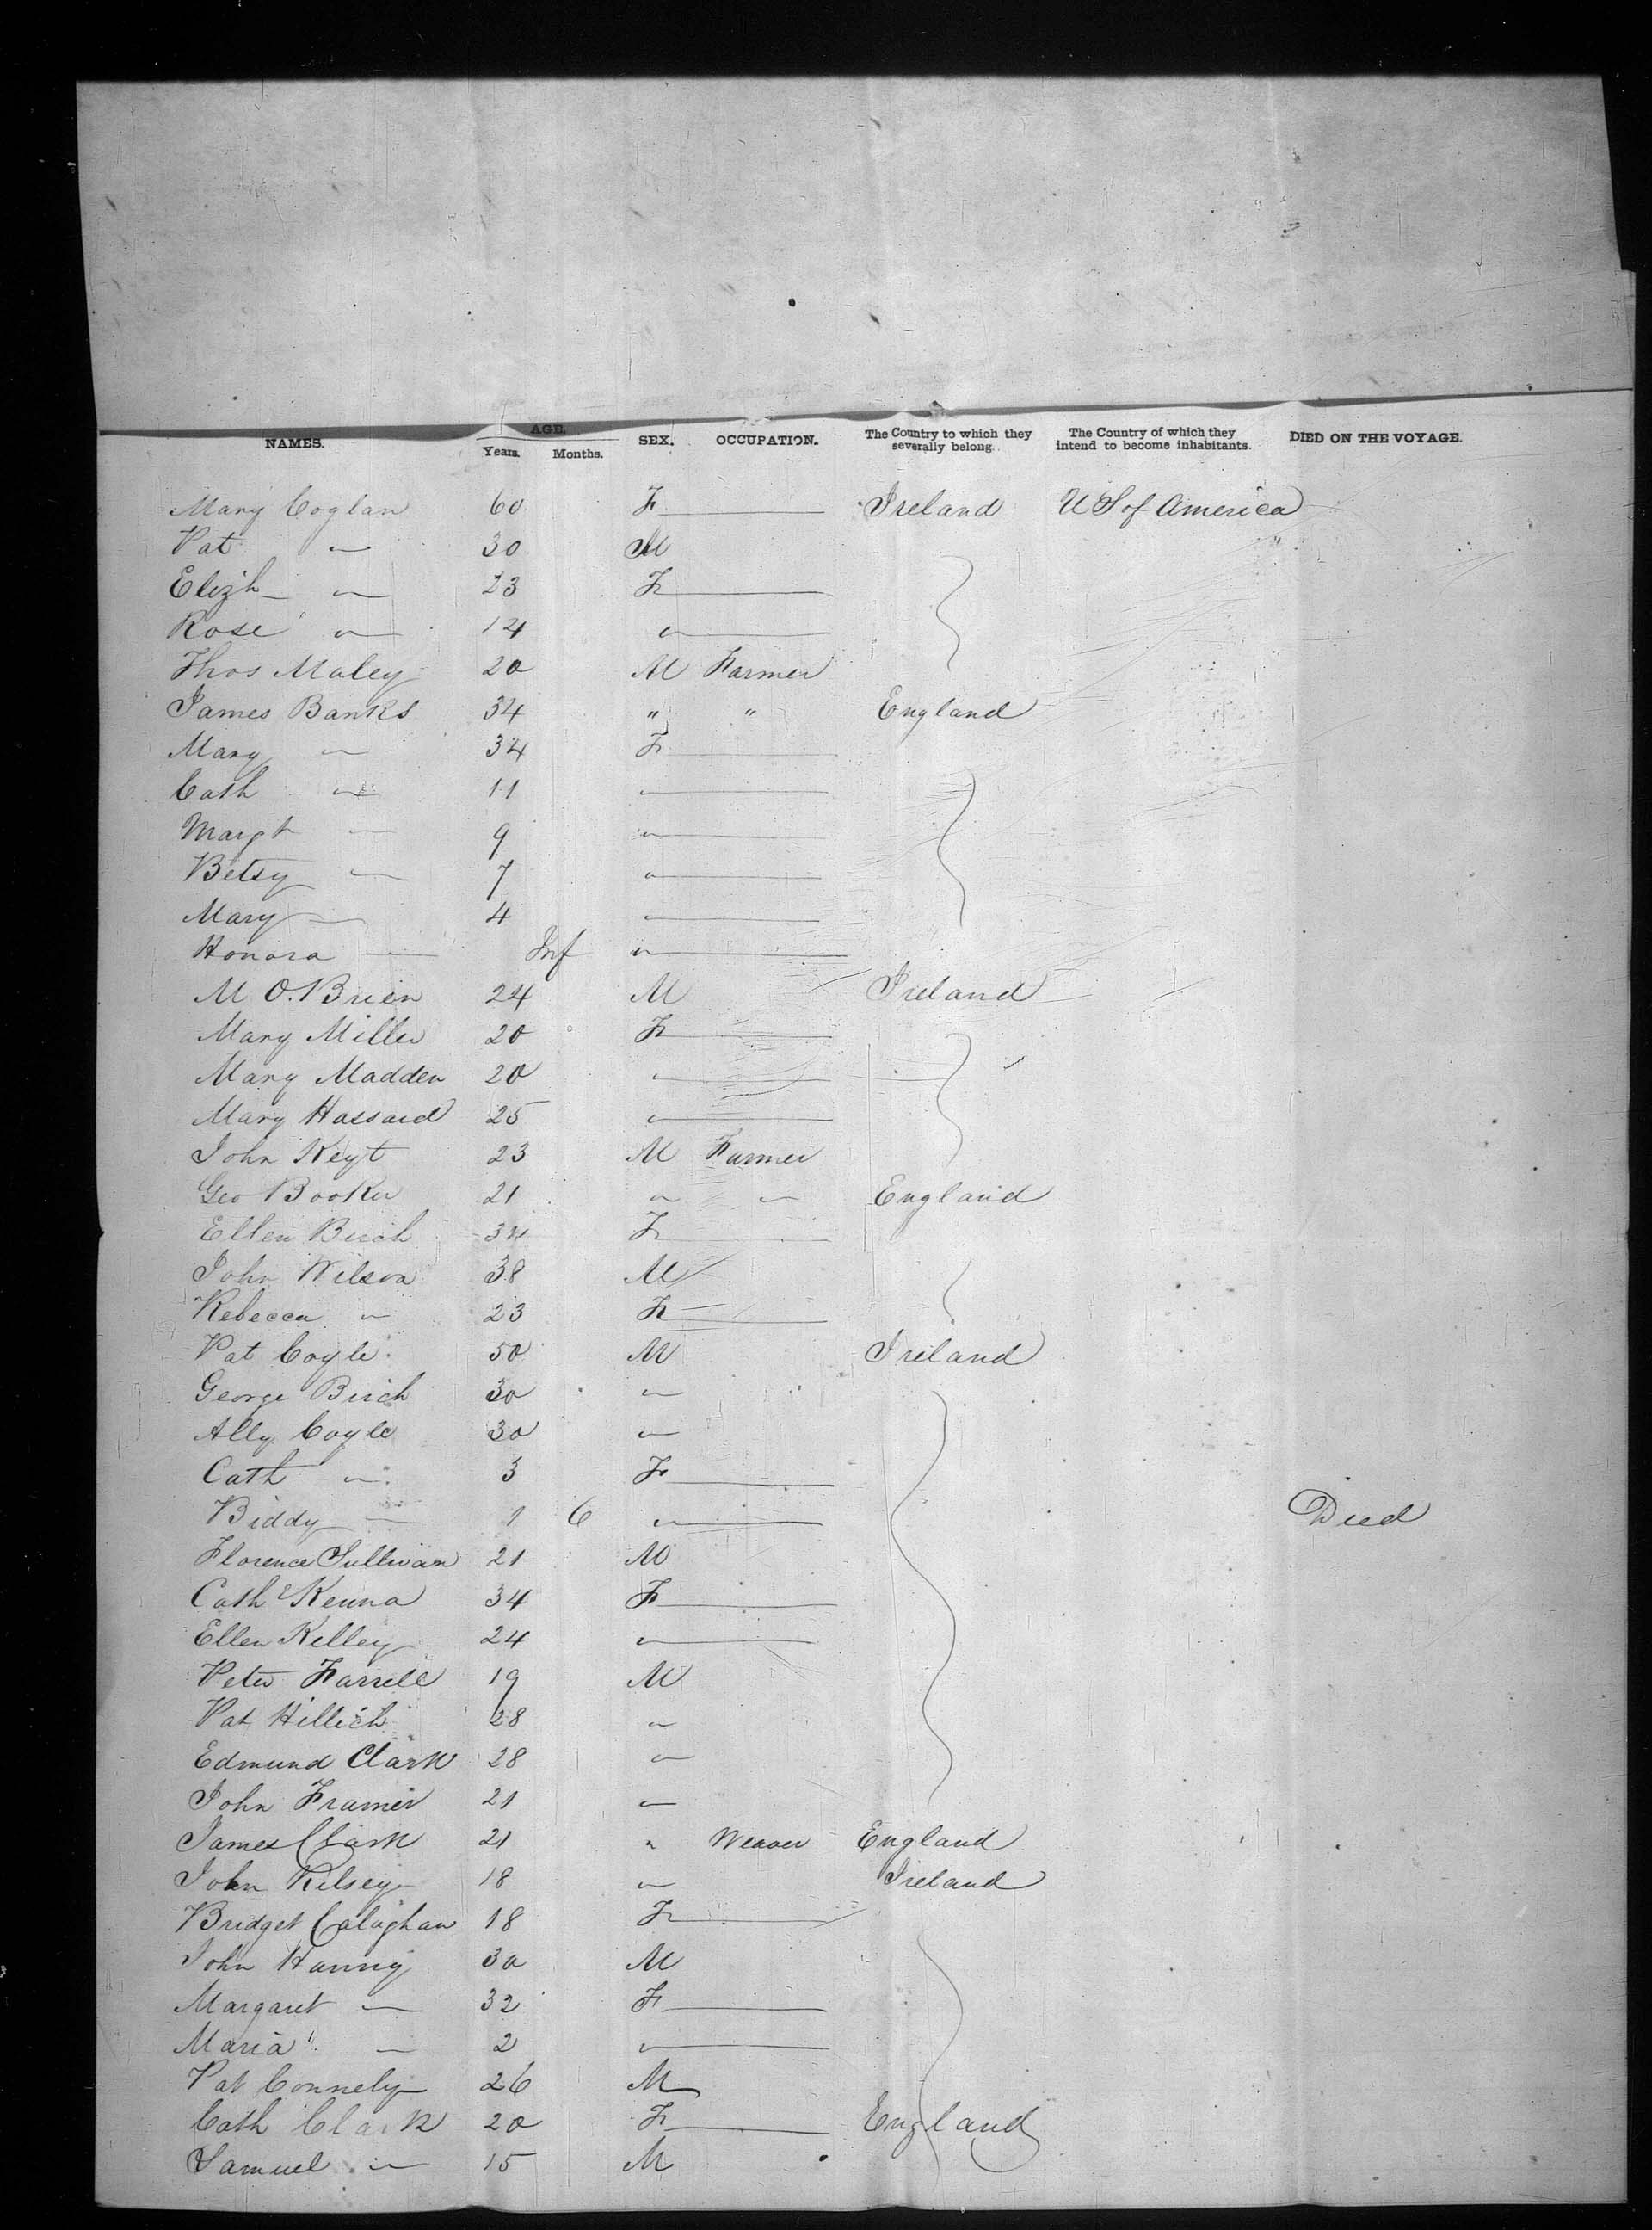 NAMES. AGE. Years. Months. SEX. OCCUPATION. The Country to which they severally belong. The Country of which they intend to become inhabitants. DIED ON THE VOYAGE.
Mary Coglan 60 F Ireland U S of America
Pat " 30 M
Elizh " 23 F
Rose " 14 "
Thos Maley 20 M Farmer
James Banks 34 " " England
Mary " 34 F
Cath " 11 "
Margt " 9 "
Betsy " 7 "
Mary " 4 "
Honora " Inf "
M O.Brien 24 M Ireland
Mary Miller 20 F
Mary Madden 20 "
Mary Hassard 25 "
John Keyt 23 M Farmer
Geo Booker 21 " " England
Ellen Birch 34 F
John Wilson 38 M
Rebecca " 23 F
Pat Coyle 50 M Ireland
George Birch 30 "
Ally Coyle 30 "
Cath " 3 F
Biddy " 1 6 " Died
Florence Sullivan 21 M
Cath Kenna 34 F
Ellen Kelley 24 "
Peter Farrell 19 M
Pat Hillich 28 "
Edmund Clark 28 "
John Framer 21 "
James Clark 21 " Weaver England
John Kilsey 18 " Ireland
Bridget Calaghan 18 F
John Hannig 30 M
Margaret " 32 F
Maria " 2 "
Pat Connely 26 M
Cath Clark 20 F England
Samuel " 15 M